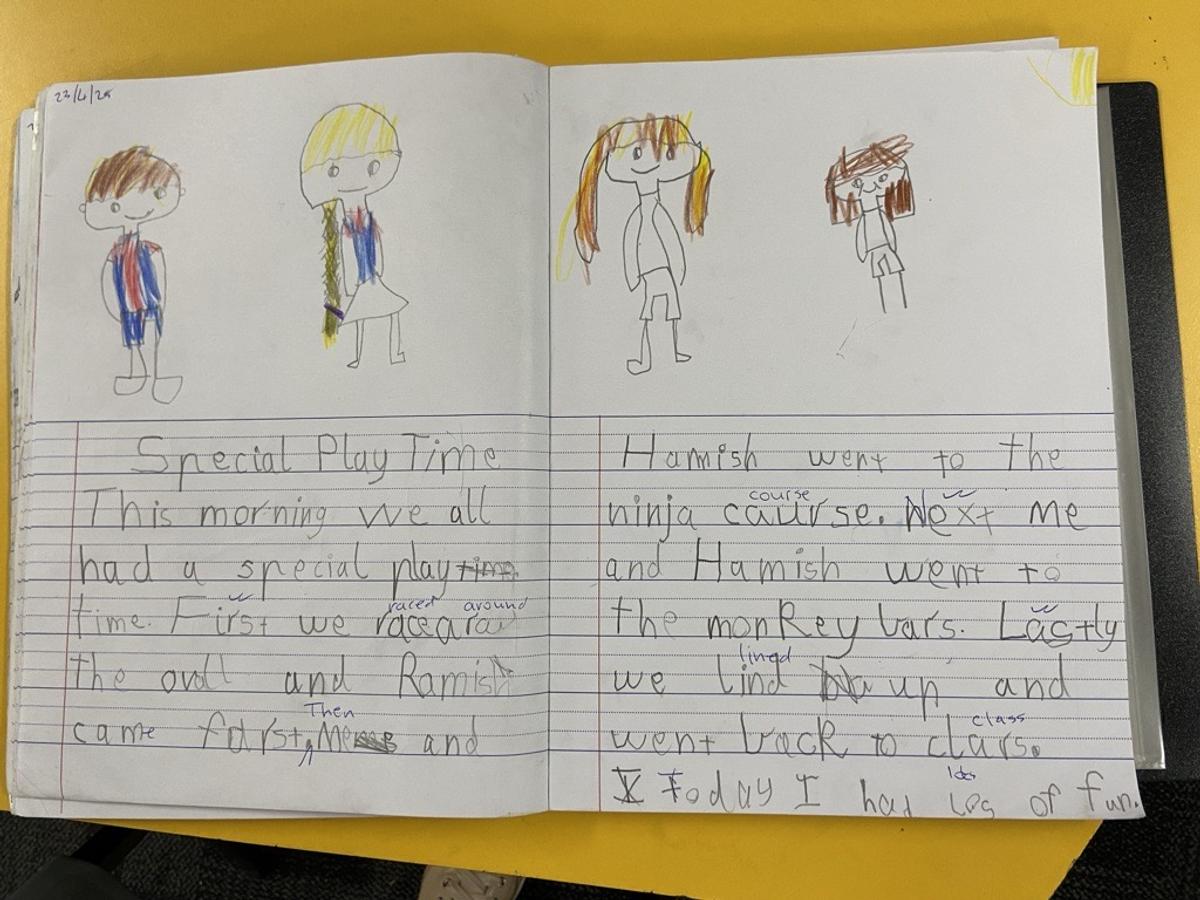 23/4/25
Special Play Time
This morning we all
had a special play time
time. First we race arou
raced around
the ovall and Ramish
came farst, Me and
Then
Hamish went to the
ninja caurse. Next me
course
and Hamish went to
the monkey bars. Lastly
we lind up and
lined
went back to clars.
class
I Today I had los of fun.
lots